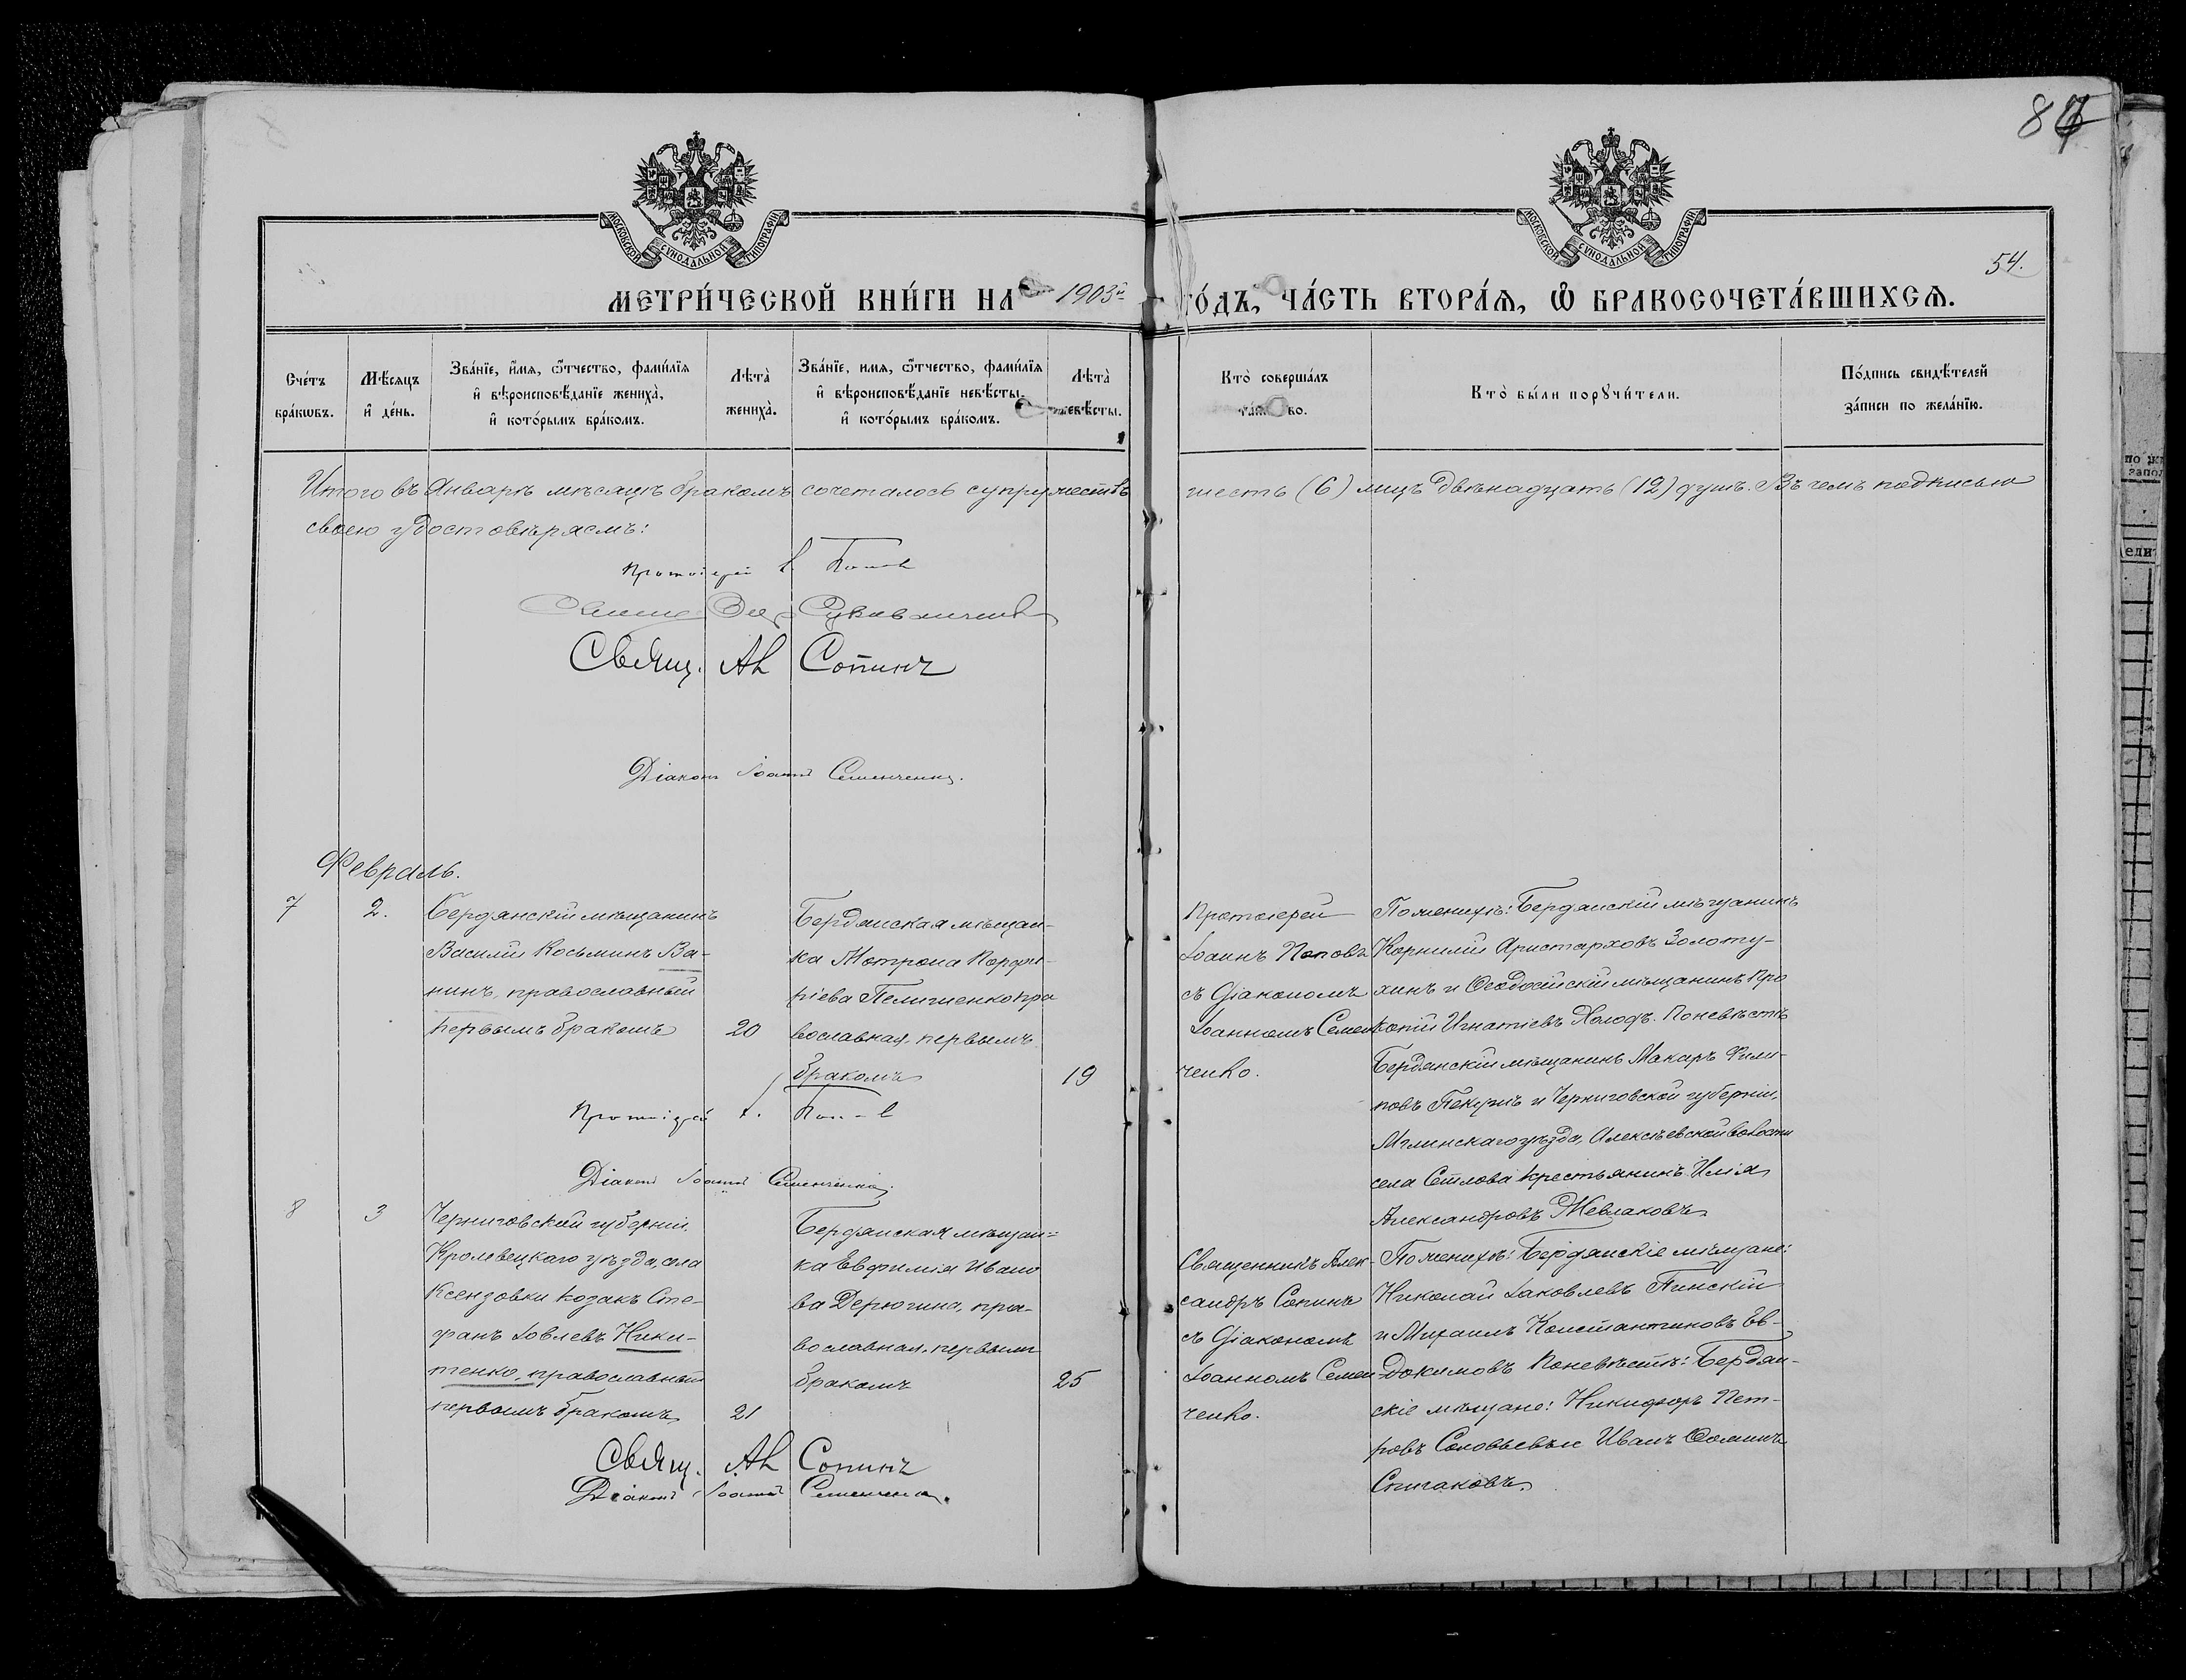 87
54.
МОСКОВСКОЙ СѴНОДАЛЬНОЙ ТИПОГРАФІИ
МОСКОВСКОЙ СѴНОДАЛЬНОЙ ТИПОГРАФІИ
МЕТРИ́ЧЕСКОЙ КНИ́ГИ НА 1903й ГО́ДЪ, ЧА́СТЬ ВТОРА́Я, Ѡ БРАКОСОЧЕТА́ВШИХСЯ.
Сче́тъ
бра́кѡвъ.
Мѣ́сяцъ
и҆ де́нь.
Зва́нїе, и҆́мя, ѿтчество, фами́лїя
и҆ вѣроисповѣ́данїе жениха̀,
и҆ кото́рымъ бра́комъ.
Лѣта̀
жениха̀.
Зва́нїе, имя, ѿтчество, фами́лїя
и҆ вѣроисповѣ́данїе невѣ́сты,
и҆ кото́рымъ бра́комъ.
Лѣта̀
невѣ́сты.
Кто̀ соверша́лъ
Кто̀ бы́ли порꙋчи́тели.
По́дпись свидѣ́телей
за́писи по жела́нїю.
Итого въ Январѣ мѣсяцѣ бракомъ сочеталось супружествъ шесть (6) лицъ двѣнадцать (12) душъ. Въ чемъ подписью
своею удостовѣряемъ:
Протоіерей І. Поповъ
Свящ. Ал Сопинъ
Діаконъ Іоаннъ Семенченко.
Февраль.
7
2.
Бердянскій мѣщанинъ
Василій Косьминъ Ва-
нинъ, православный
первымъ бракомъ
20
Бердянская мѣщан-
ка Мотрона Порфи-
ріева Пелипенко пра
вославная, первымъ
бракомъ
19
Протоіерей
Іоаннъ Поповъ
съ Діакономъ
Іоанномъ Семен
ченко.
По женихѣ: Бердянскій мѣщанинъ
Корнилій Аристарховъ Золоту-
хинъ и Ѳеодосійскій мѣщанинъ Про
копій Игнатіевъ Холодъ. По невѣстѣ
Бердянскій мѣщанинъ Макаръ Фили-
повъ Пекушъ и Черниговской губерніи,
Мглинскаго уѣзда, Алексѣевской волости
села крестьянинъ Илія
Александровъ Жевлаковъ
Протоіерей І. Поповъ
Діаконъ Іоаннъ Семенченко.
8
3
Черниговской губерніи,
Кролевецкаго уѣзда, села
Ксендзовки козакъ Сте-
фанъ Іовлевъ Ники-
тенко, православный
первымъ бракомъ
21
Бердянская мѣщан-
ка Евфимія Ивано
ва Дерюгина, пра-
вославная, первымъ
бракомъ
25
Священникъ Алек-
сандръ Сопинъ
съ Діакономъ
Іоанномъ Семен
ченко.
По женихѣ: Бердянскіе мѣщане:
Николай Іаковлевъ Пинскій
и Михаилъ Константиновъ Ев-
докимовъ По невѣстѣ: Бердян-
скіе мѣщане: Никифоръ Пет-
ровъ Соловьевъ и Иванъ Ѳоминъ
Спигаковъ.
Свящ. Ал Сопинъ
Діаконъ Іоаннъ Семенченко.